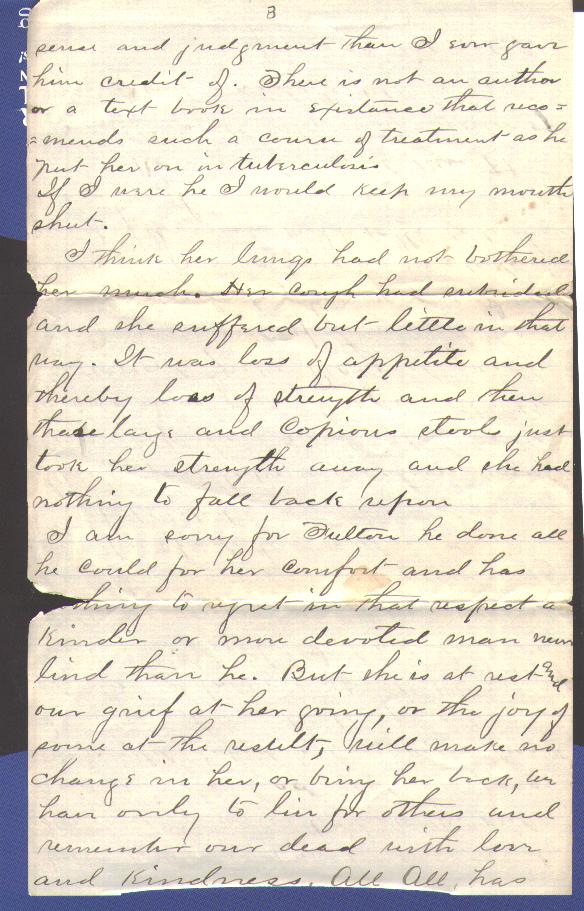 3
sense and judgment than I ever gave
him credit of. There is not an author
or a text book in existance that reco=
=mends such a course of treatment as he
put her on in tuberculosis
If I were he I would keep my mouth
shut.
I think her lungs had not bothered
her much. Her cough had subsided
and she suffered but little in that
way. It was loss of appetite and
thereby loss of strength and then
those large and Copious stools just
took her strength away and she had
nothing to fall back upon
I am sorry for Fulton he done all
he could for her comfort and has
thing to regret in that respect a
Kinder or more devoted man never
lived than he. But she is at rest and
our grief at her going, or the joy of
some at the result, will make no
change in her, or bring her back, we
have only to live for others and
remember our dead with love
and Kindness. All All, has